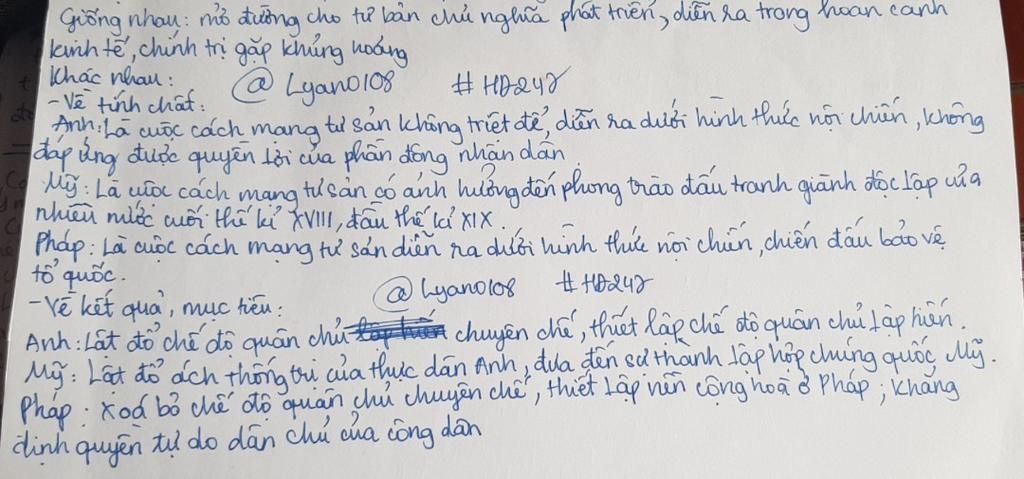 Giống nhau: mở đường cho tư bản chủ nghĩa phát triển, diễn ra trong hoàn cảnh
kinh tế, chính trị gặp khủng hoảng
Khác nhau: @Lyano108 #HD247
- Về tính chất:
Anh: Là cuộc cách mạng tư sản không triệt để, diễn ra dưới hình thức nội chiến, không
đáp ứng được quyền lợi của phần đông nhân dân.
Mỹ: Là cuộc cách mạng tư sản có ảnh hưởng đến phong trào đấu tranh giành độc lập của
nhiều nước cuối thế kỉ XVIII, đầu thế kỉ XIX.
Pháp: Là cuộc cách mạng tư sản diễn ra dưới hình thức nội chiến, chiến đấu bảo vệ
tổ quốc.
- Về kết quả, mục tiêu: @Lyano108 #HD247
Anh: Lật đổ chế độ quân chủ chuyên chế, thiết lập chế độ quân chủ lập hiến.
Mỹ: Lật đổ ách thống trị của thực dân Anh, đưa đến sự thành lập hợp chúng quốc Mỹ.
Pháp: Xoá bỏ chế độ quân chủ chuyên chế, thiết lập nền cộng hoà ở Pháp; khẳng
định quyền tự do dân chủ của công dân